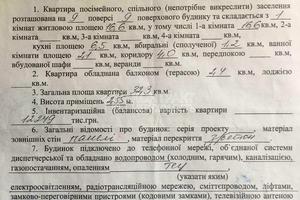 1. Квартира посімейного, спільного (непотрібне викреслити) заселення
розташована на 9 поверсі 9 поверхового будинку та складається з 1
кімнат житловою площею 16,6 кв.м, у тому числі 1-а кімната 16,6 кв.м, 2-а
кімната кв.м, 3-а кімната кв.м, 4-а кімната кв.м,
кухні площею 6,5 кв.м, вбиральні (сполученої) 1,2 кв.м, ванної
кімнати площею 2,1 кв.м, коридору 4,0 кв.м, передпокою кв.м,
вбудованої шафи кв.м, веранди кв.м.
2. Квартира обладнана балконом (терасою) 2,4 кв.м, лоджією
кв.м.
3. Загальна площа квартири 34,3 кв.м.
4. Висота приміщень 2,55 м.
5. Інвентаризаційна (балансова) вартість квартири
тис.грн.
6. Загальні відомості про будинок: серія проекту матеріал
зовнішніх стін панелі, матеріал перекриття
7. Будинок підключено до телефонної мережі, об'єднаної системи
диспетчерської та обладнано водопроводом (холодним, гарячим), каналізацією,
газопостачанням, опаленням тец
(указати яким)
електроосвітленням, радіотрансляційною мережею, сміттєпроводом, ліфтами,
замково-переговорними пристроями (кодовими замками), телевізійною антеною